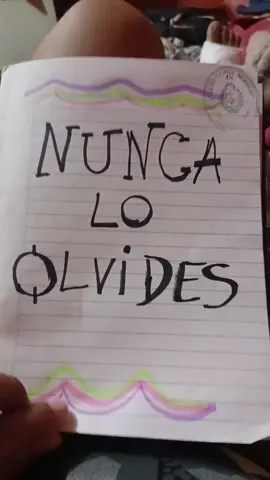 NUNCA
LO
OLViDES